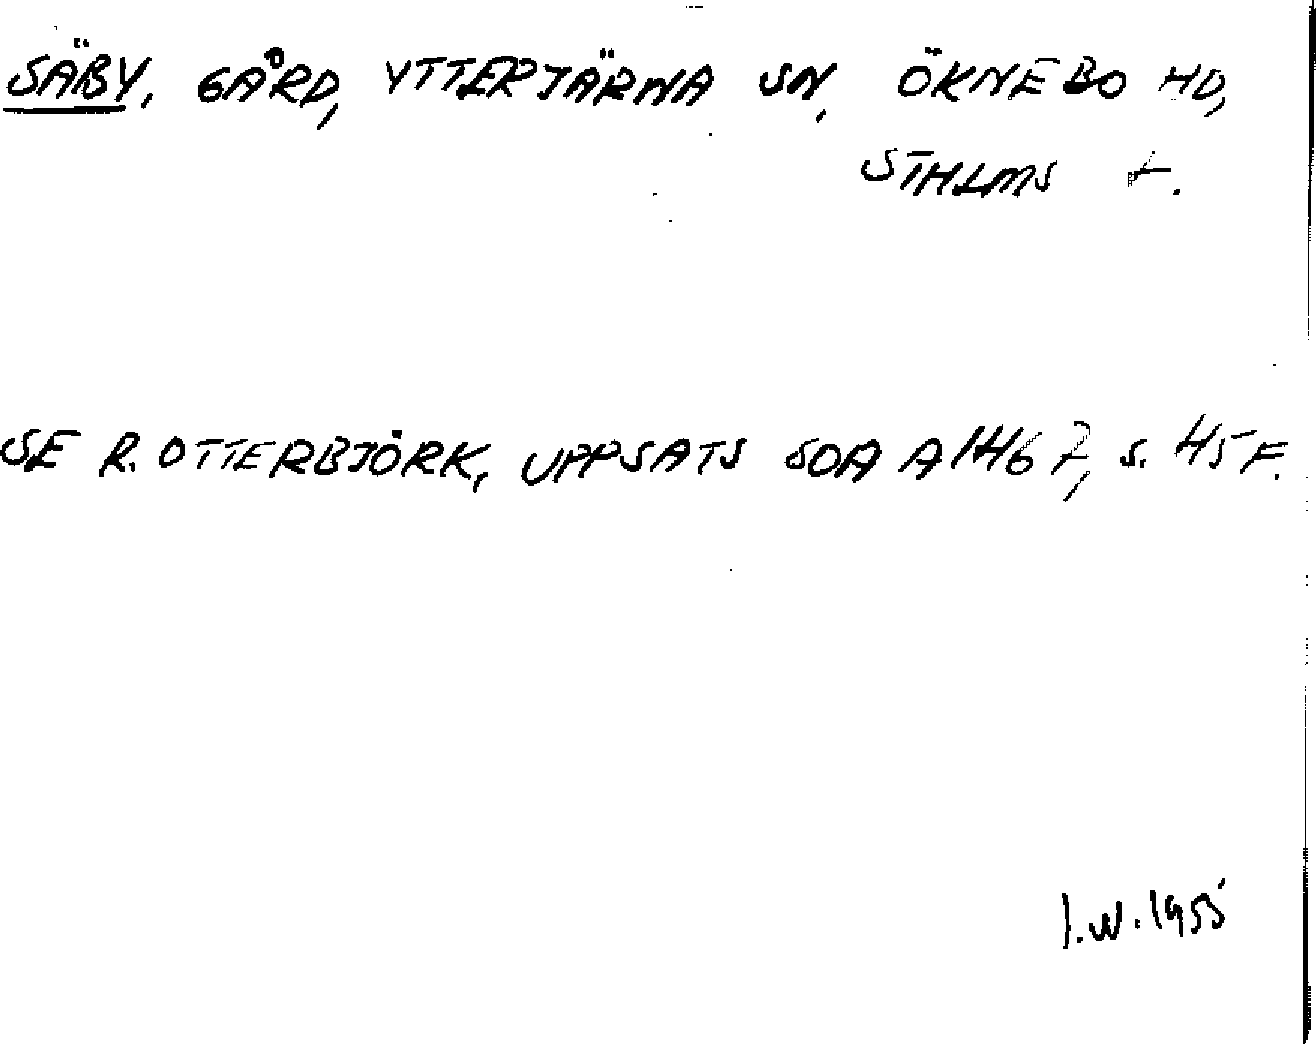 SÄBY, GÅRD, YTTERJÄRNA SN, ÖKNEBO HD,
STHLMS L.
SE R. OTTERBJÖRK, UPPSATS SOA A1467, S. 45 F.
I.W. 1955